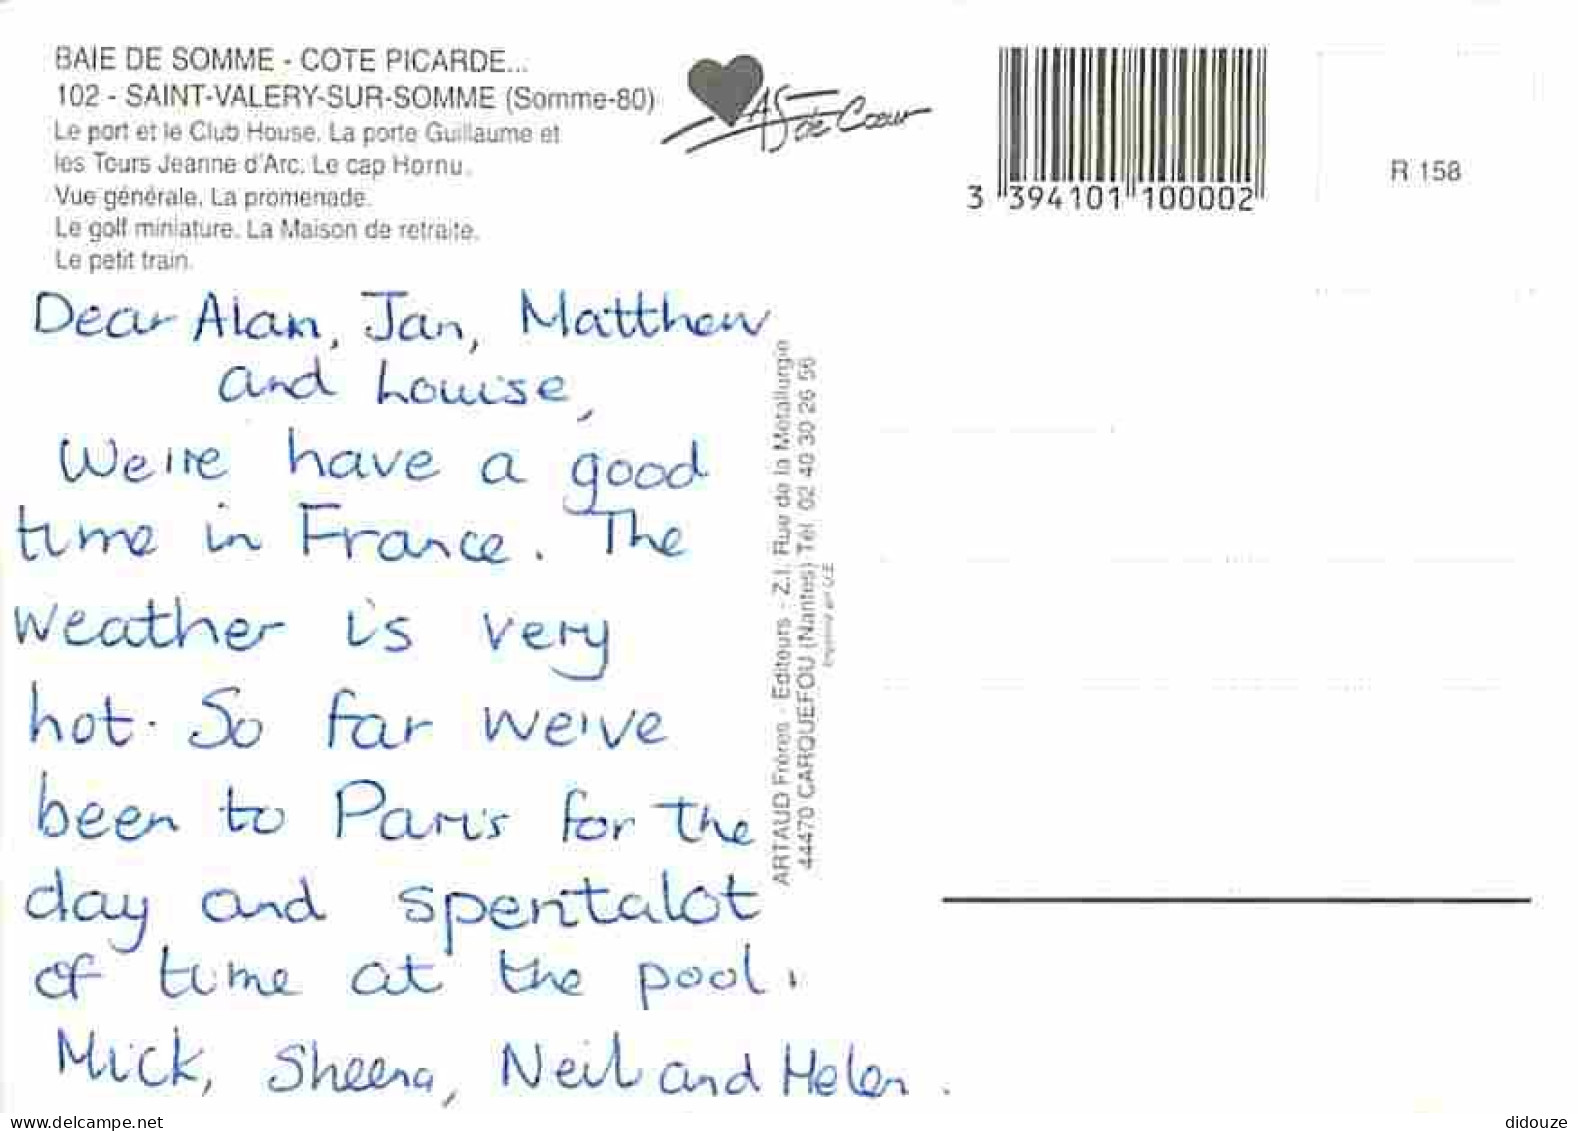 BAIE DE SOMME - COTE PICARDE...
102 - SAINT-VALERY-SUR-SOMME (Somme-80)
Le port et le Club House. La porte Guillaume et
les Tours Jeanne d'Arc. Le cap Hornu.
Vue générale. La promenade.
Le golf miniature. La Maison de retraite.
Le petit train.
AS de Cœur
3 394101 100002
R 158
Dear Alan, Jan, Matthew
and Louise,
We're have a good
time in France. The
weather is very
hot. So far we've
been to Paris for the
day and spentalot
of time at the pool.
Mick, Sheena, Neil and Helen.
ARTAUD Frères - Editeurs - Z.I. Rue de la Métallurgie
44470 CARQUEFOU (Nantes) Tél. 02 40 30 26 56
Imprimé en U.E
www.delcampe.net
didouze